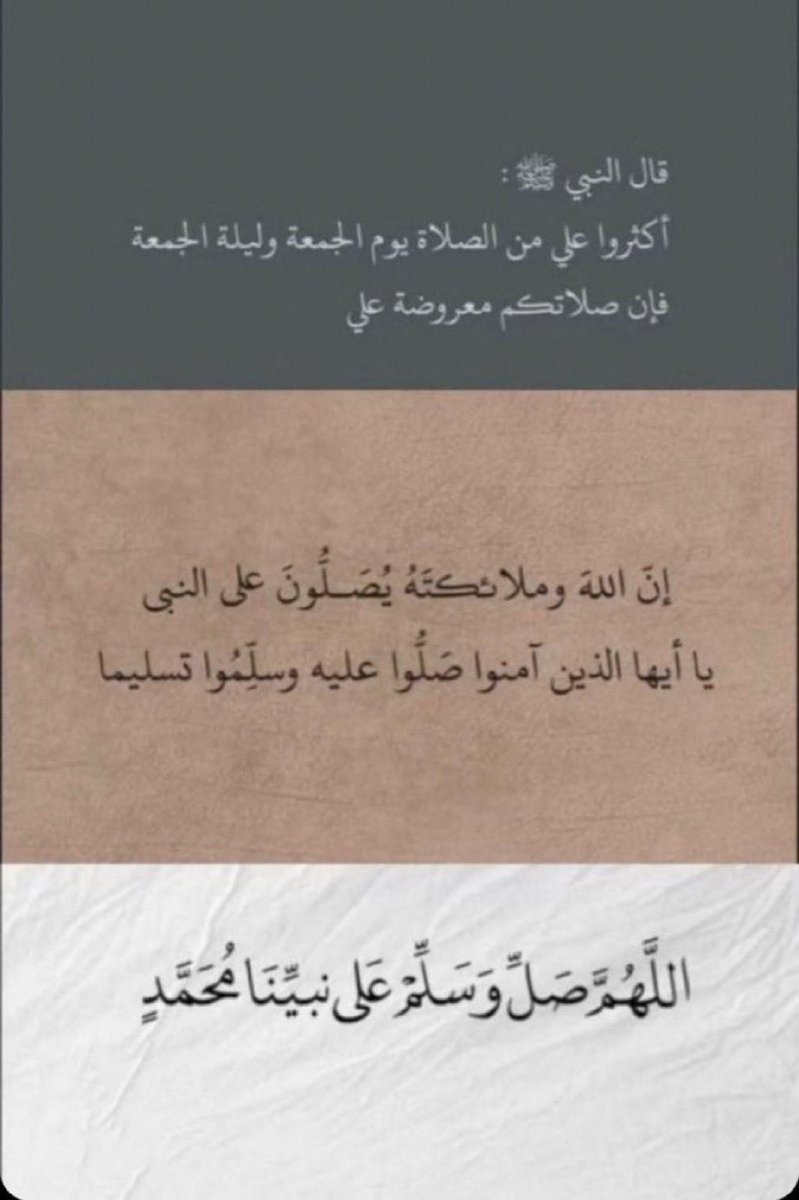 قال النبي ﷺ :
أكثروا علي من الصلاة يوم الجمعة وليلة الجمعة
فإن صلاتكم معروضة علي
إنّ اللهَ وملائكتَهُ يُصَلُّونَ على النبى
يا أيها الذين آمنوا صَلُّوا عليه وسلِّمُوا تسليما
اللَّهُمَّ صَلِّ وَسَلِّمْ عَلى نبيِّنَا مُحَمَّدٍ